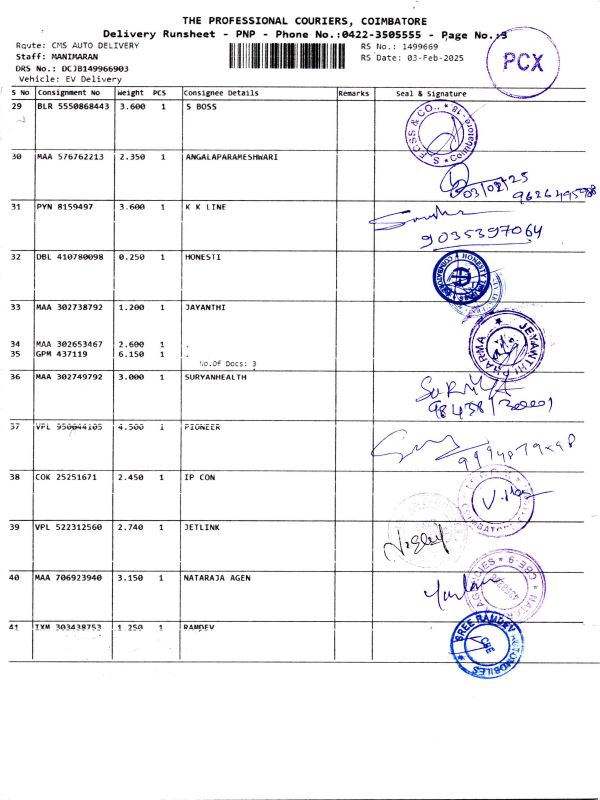 THE PROFESSIONAL COURIERS, COIMBATORE
Delivery Runsheet - PNP - Phone No.:0422-3505555 - Page No.:3
Route: CMS AUTO DELIVERY
RS No.: 1499669
Staff: MANIMARAN
RS Date: 03-Feb-2025
DRS No.: DCJB149966903
Vehicle: EV Delivery
PCX
S No Consignment No Weight PCS Consignee Details Remarks Seal & Signature
29 BLR 5550868443 3.600 1 S BOSS
S. BOSS & CO., * Coimbatore-18 *
30 MAA 576762213 2.350 1 ANGALAPARAMESHWARI
03/02/25
31 PYN 8159497 3.600 1 K K LINE
9035397064
32 DBL 410780098 0.250 1 HONESTI
33 MAA 302738792 1.200 1 JAYANTHI
JEYANTHI PHARMA
34 MAA 302653467 2.600 1 .
35 GPM 437119 6.150 1 .
No.Of Docs: 3
36 MAA 302749792 3.000 1 SURYANHEALTH
37 VPL 950044105 4.500 1 PIONEER
38 COK 25251671 2.450 1 IP CON
39 VPL 522312560 2.740 1 JETLINK
40 MAA 706923940 3.150 1 NATARAJA AGEN
41 IXM 303438753 1.250 1 RAMDEV
SREE RAMDEV AUTOMOBILES
CBE